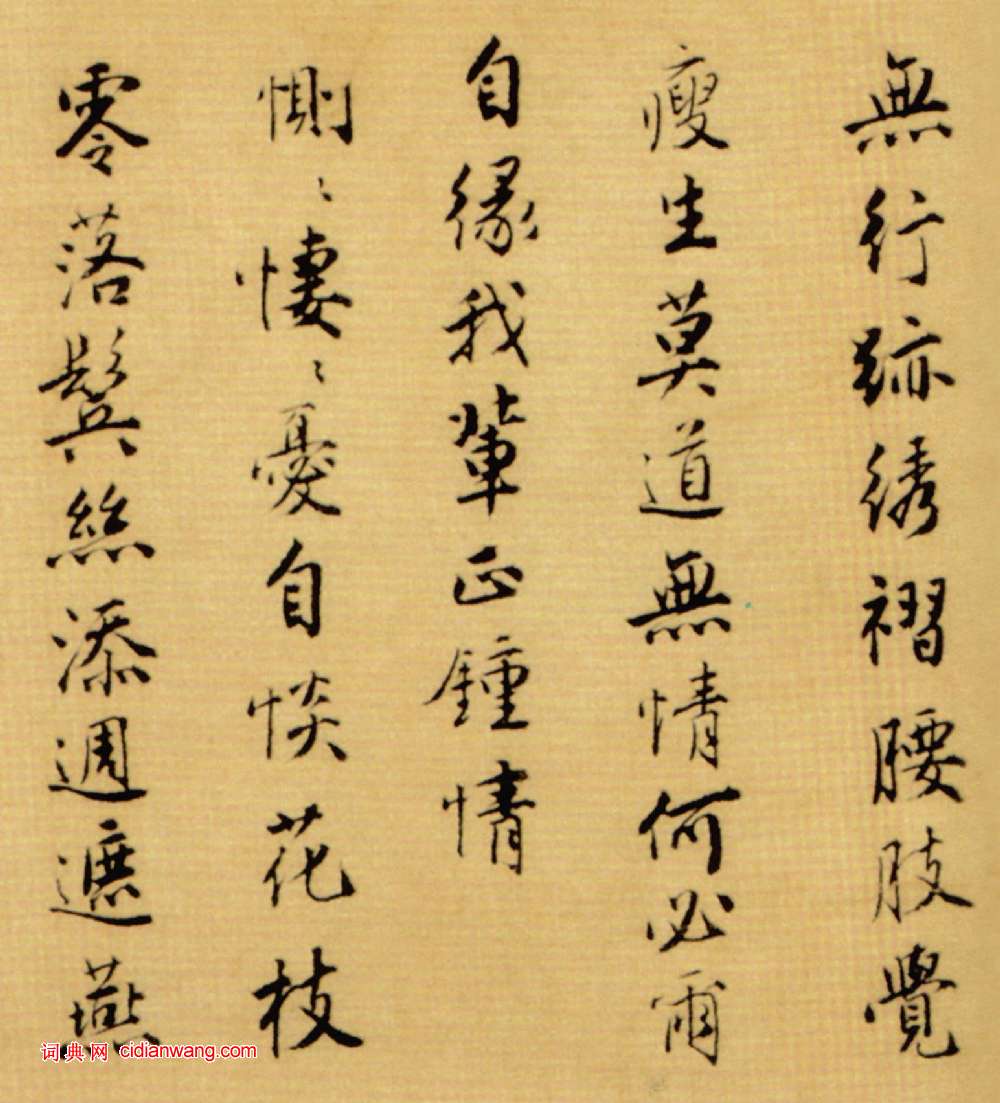 無行跡绣褶腰肢覺
瘦生莫道無情何必爾
自緣我輩正鍾情
惻〻悽〻憂自惔花枝
零落鬓絲添週遮燕
词典网 cidianwang.com